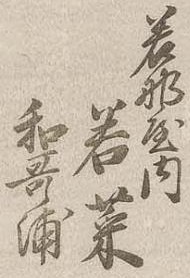 若那屋内
若菜
和哥浦